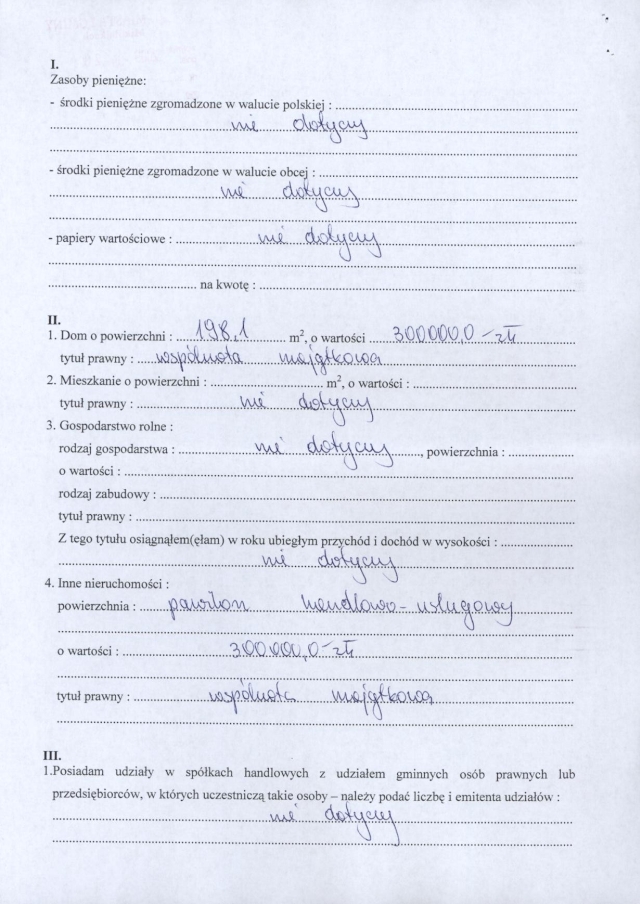 I.
Zasoby pieniężne:
- środki pieniężne zgromadzone w walucie polskiej :
nie dotyczy
- środki pieniężne zgromadzone w walucie obcej :
nie dotyczy
- papiery wartościowe : nie dotyczy
na kwotę :
II.
1. Dom o powierzchni : 198,1 m², o wartości 300000,0 - zł
tytuł prawny : wspólnota majątkowa
2. Mieszkanie o powierzchni : m², o wartości :
tytuł prawny : nie dotyczy
3. Gospodarstwo rolne :
rodzaj gospodarstwa : nie dotyczy, powierzchnia :
o wartości :
rodzaj zabudowy :
tytuł prawny :
Z tego tytułu osiągnąłem(ęłam) w roku ubiegłym przychód i dochód w wysokości :
nie dotyczy
4. Inne nieruchomości :
powierzchnia : pawilon handlowo - usługowy
o wartości : 300000,0 - zł
tytuł prawny : wspólnota majątkowa
III.
1.Posiadam udziały w spółkach handlowych z udziałem gminnych osób prawnych lub
przedsiębiorców, w których uczestniczą takie osoby – należy podać liczbę i emitenta udziałów :
nie dotyczy